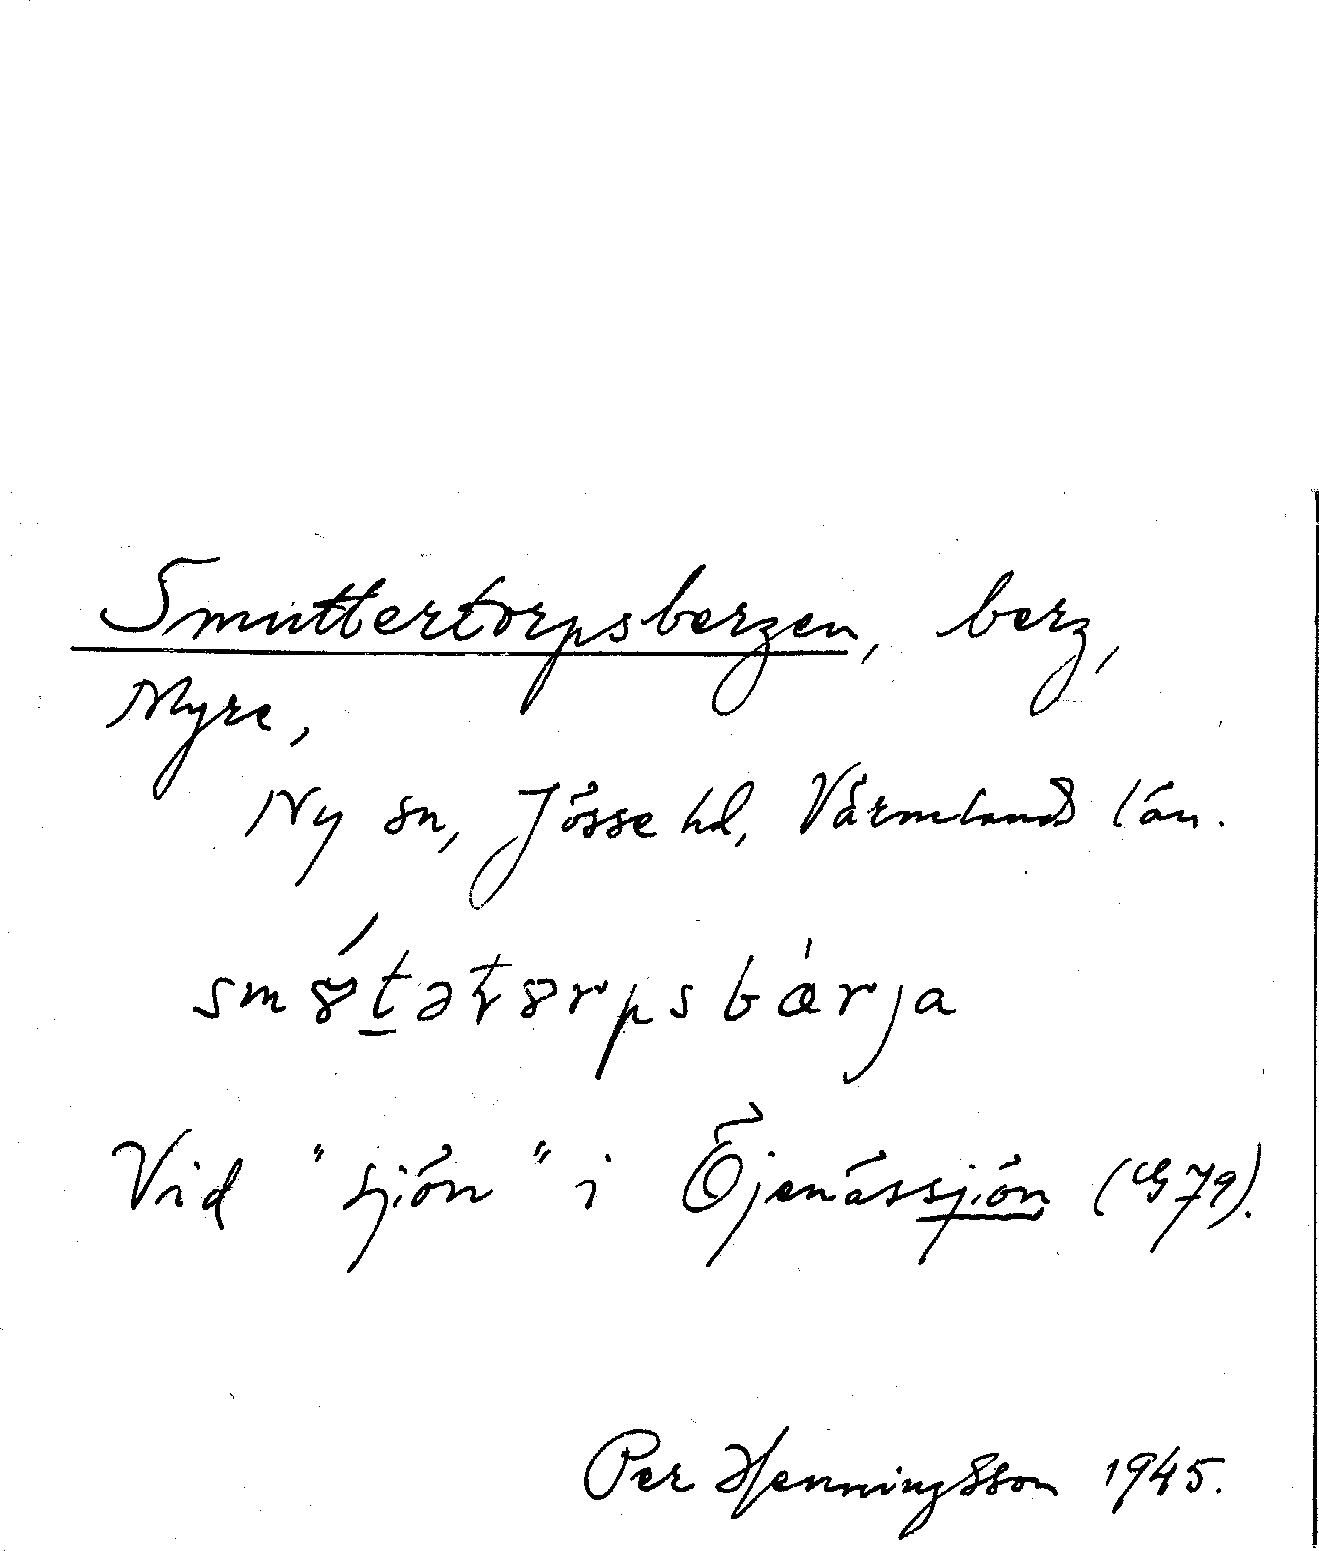 Smuttertorpsbergen, berg,
Myre,
Ny sn, Jösse hd, Värmlands län.
Vid "sjön" i Öjenässjön (G79).
Per Henningsson 1945.